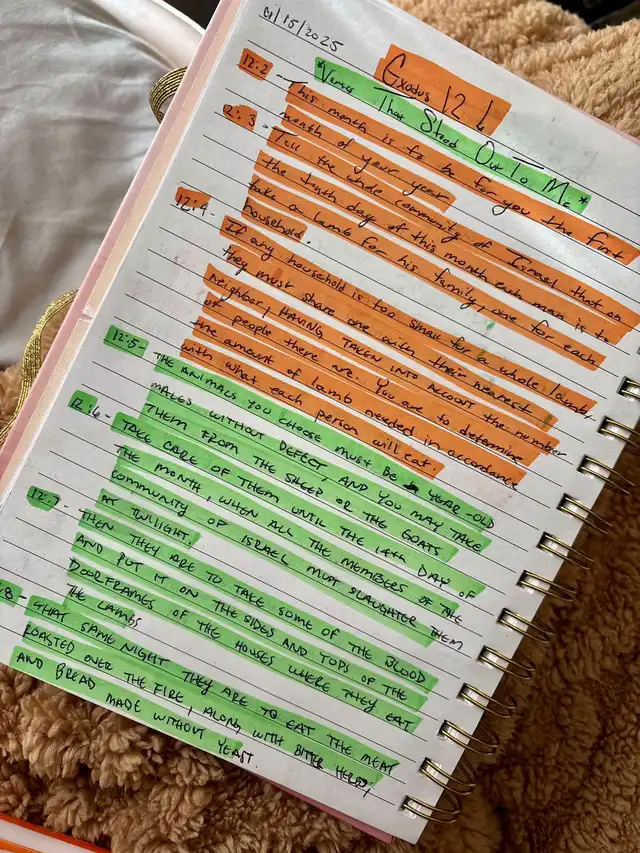 4/15/2025
Exodus 12
*Verses That Stood Out To Me*
12:2 - This month is to be for you the first
month of your year
2:3 - Tell the whole community of Israel that on
the tenth day of this month each man is to
take a lamb for his family, one for each
household.
12:4 - If any household is too small for a whole lamb,
they must share one with their nearest
neighbor, HAVING TAKEN INTO ACCOUNT the number
of people there are. You are to determine
the amount of lamb needed in accordance
with what each person will eat.
12:5 - THE ANIMALS YOU CHOOSE MUST BE YEAR-OLD
MALES WITHOUT DEFECT, AND YOU MAY TAKE
THEM FROM THE SHEEP OR THE GOATS
12:6 - TAKE CARE OF THEM UNTIL THE 14th DAY OF
THE MONTH, WHEN ALL THE MEMBERS OF THE
COMMUNITY OF ISRAEL MUST SLAUGHTER THEM
AT TWILIGHT.
12:7 - THEN THEY ARE TO TAKE SOME OF THE BLOOD
AND PUT IT ON THE SIDES AND TOPS OF THE
DOORFRAMES OF THE HOUSES WHERE THEY EAT
THE LAMBS
:8 - THAT SAME NIGHT THEY ARE TO EAT THE MEAT
ROASTED OVER THE FIRE, ALONG WITH BITTER HERBS,
AND BREAD MADE WITHOUT YEAST.